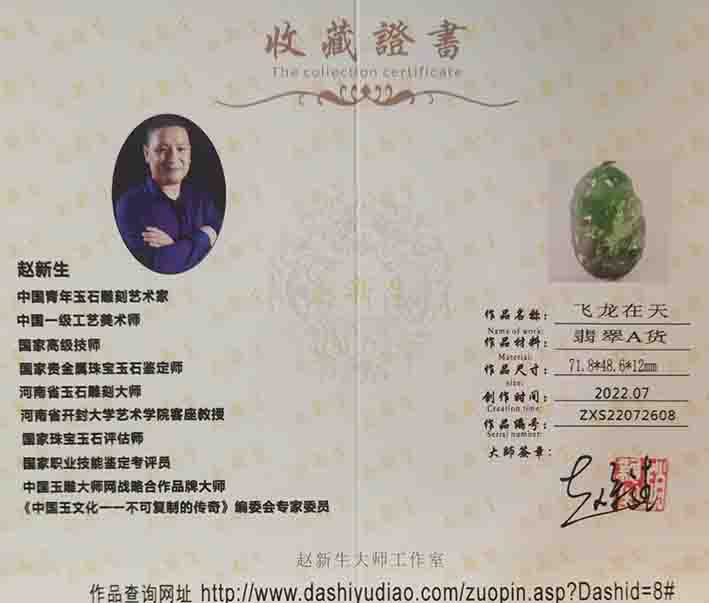 收藏證書
The collection certificate
赵新生
中国青年玉石雕刻艺术家
中国一级工艺美术师
国家高级技师
国家贵金属珠宝玉石鉴定师
河南省玉石雕刻大师
河南省开封大学艺术学院客座教授
国家珠宝玉石评估师
国家职业技能鉴定考评员
中国玉雕大师网战略合作品牌大师
《中国玉文化一一不可复制的传奇》编委会专家委员
作品名称： 飞龙在天
Name of work:
作品材料： 翡翠A货
Material:
作品尺寸： 71.8*48.6*12mm
size:
创作时间： 2022.07
Creation time:
作品编号： ZXS22072608
Serial number:
大師签章：
赵新生大师工作室
作品查询网址 http://www.dashiyudiao.com/zuopin.asp?Dashid=8#